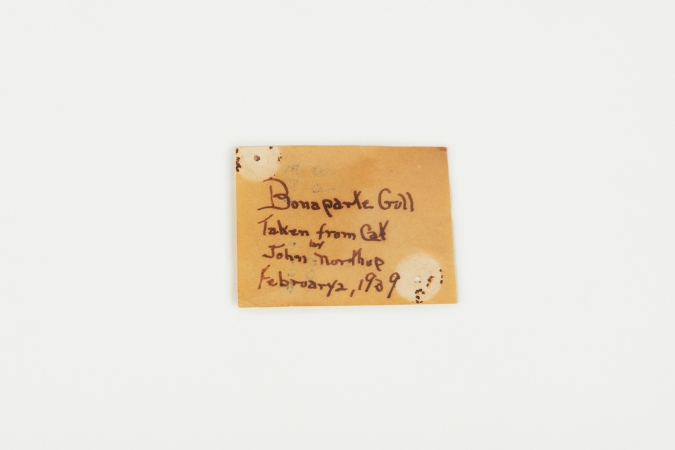 Bonaparte Gull
Taken from Cat
by
John Northup
February 2, 1939